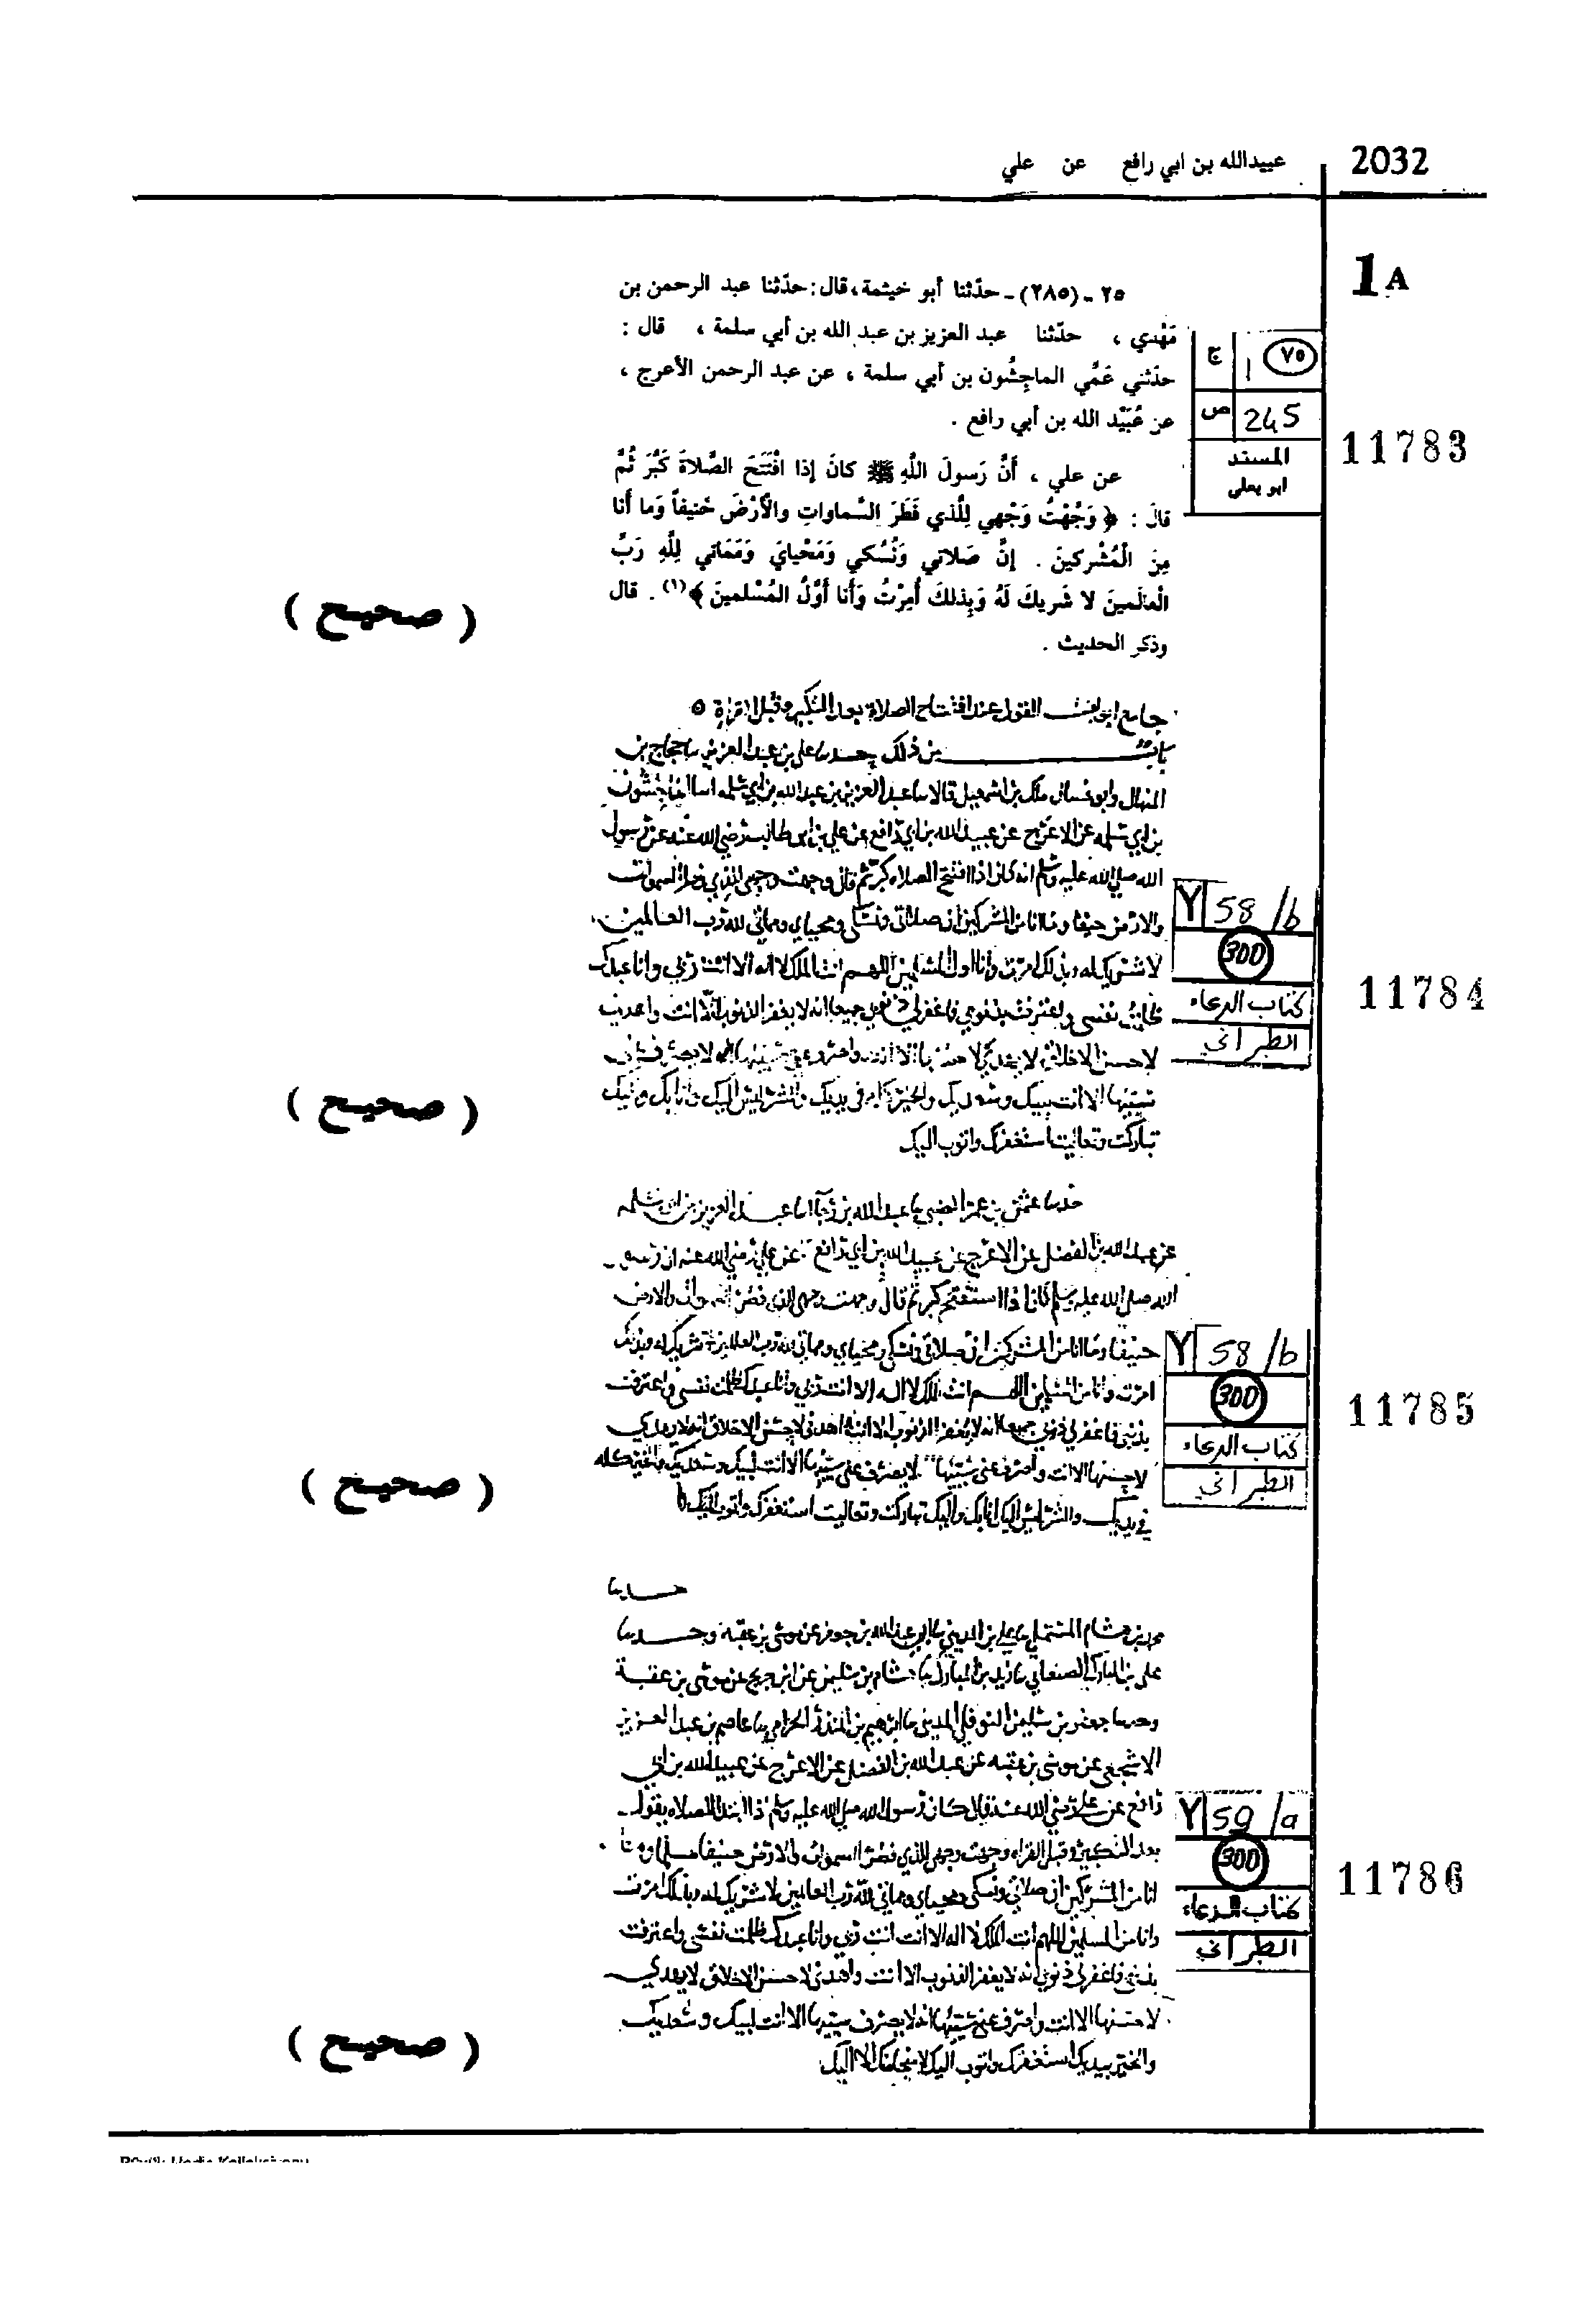 2032
عبيدالله بن ابي رافع عن علي
1A
٢٥ - (٢٨٥) - حدّثنا أبو خيثمة، قال: حدّثنا عبد الرحمن بن
مَهْدي ، حدّثنا عبد العزيز بن عبد الله بن أبي سلمة ، قال :
حدّثني عَمِّي الماجِشُون بن أبي سلمة ، عن عبد الرحمن الأعرج ،
عن عُبَيْد الله بن أبي رافع .
عن علي ، أَنَّ رَسولَ اللَّهِ ﷺ كانَ إذا افْتَتَحَ الصَّلاةَ كَبَّرَ ثُمَّ
قالَ : ﴿ وَجَّهْتُ وَجْهي لِلَّذي فَطَرَ السَّماواتِ والأَرْضَ حَنيفاً وَما أَنا
مِنَ الْمُشْركينَ . إنَّ صَلاتي وَنُسُكي وَمَحْيايَ وَمَمَاتي لِلَّهِ رَبِّ
الْعالَمينَ لا شَريكَ لَهُ وَبِذلكَ أُمِرْتُ وَأَنا أَوَّلُ المُسْلمينَ ﴾(١) . قال
وذكر الحديث .
٧٥ ١ ج
245 ص
المسند
ابو يعلى
11783
( صحيح )
القول عند افتتاح الصلاة بعد التكبير وقبل القراءة
من ذلك حدثنا علي بن عبد العزيز حجاج بن
المنهال وابو غسان ملك بن اسمعيل قالا عبد العزيز بن عبد الله بن ابي سلمه الماجشون
بن ابي سلمه عن الاعرج عن عبيد الله بن ابي رافع عن علي بن ابي طالب رضي الله عنه عن رسول
الله صلي الله عليه وسلم انه كان اذا افتتح الصلاه كبر ثم قال وجهت وجهي للذي فطر السموات
والارض حنيفا وما انا من المشركين ان صلاتي ونسكي ومحياي ومماتي لله رب العالمين
لا شريك له وبذلك امرت وانا اول المسلمين اللهم انت الملك لا اله الا انت ربي وانا عبدك
ظلمت نفسي واعترفت بذنوبي فاغفر لي ذنوبي جميعا انه لا يغفر الذنوب الا انت واهدني
لاحسن الاخلاق لا يهدي لاحسنها الا انت واصرف عني سيئها انه لا يصرف عني
سيئها الا انت لبيك وسعديك والخير كله في يديك والشر ليس اليك وانا بك واليك
تباركت وتعاليت استغفرك واتوب اليك
Y 58/b
300
كتاب الدعاء
الطبراني
11784
( صحيح )
حدثنا عثمن بن عمر الضبي عبد الله بن رجا عبد العزيز بن ابي سلمه
عن عبد الله بن الفضل عن الاعرج عن عبيد الله بن ابي رافع عن علي رضي الله عنه ان رسول
الله صلي الله عليه وسلم كان اذا استفتح كبر ثم قال وجهت وجهي للذي فطر السموات والارض
حنيفا وما انا من المشركين ان صلاتي ونسكي ومحياي ومماتي لله رب العالمين لا شريك له وبذلك
امرت وانا من المسلمين اللهم انت الملك لا اله الا انت ربي وانا عبدك ظلمت نفسي واعترفت
بذنبي فاغفر لي ذنوبي جميعا انه لا يغفر الذنوب الا انت اهدني لاحسن الاخلاق انه لا يهدي
لاحسنها الا انت واصرف عني سيئها لا يصرف عني سيئها الا انت لبيك وسعديك والخير كله
في يديك والشر ليس اليك انا بك واليك تباركت وتعاليت استغفرك واتوب اليك
Y 58/b
300
كتاب الدعاء
الطبراني
11785
( صحيح )
حدثنا
محمد بن هشام المستملي علي بن المديني عبد الله بن جعفر عن موسى بن عقبه وحدثنا
علي بن المبارك الصنعاني زيد بن المبارك هشام بن سليمن عن ابن جريج عن موسى بن عقبة
وحدثنا جعفر بن سليمن النوفلي المديني ابرهيم بن المنذر الحزامي عاصم بن عبد العزيز
الاشجعي عن موسى بن عقبه عن عبد الله بن الفضل عن الاعرج عن عبيد الله بن ابي
رافع عن علي رضي الله عنه قال كان رسول الله صلي الله عليه وسلم اذا ابتدا الصلاه يقول
بعد التكبير وقبل القراه وجهت وجهي للذي فطر السموات والارض حنيفا مسلما وما
انا من المشركين ان صلاتي ونسكي ومحياي ومماتي لله رب العالمين لا شريك له وبذلك امرت
وانا من المسلمين اللهم انت الملك لا اله الا انت انت ربي وانا عبدك ظلمت نفسي واعترفت
بذنبي فاغفر لي ذنوبي انه لا يغفر الذنوب الا انت واهدني لاحسن الاخلاق لا يهدي
لاحسنها الا انت واصرف عني سيئها انه لا يصرف سيئها الا انت لبيك وسعديك
والخير بيديك استغفرك واتوب اليك لا منجا منك الا اليك
Y 59/a
300
كتاب الدعاء
الطبراني
11786
( صحيح )